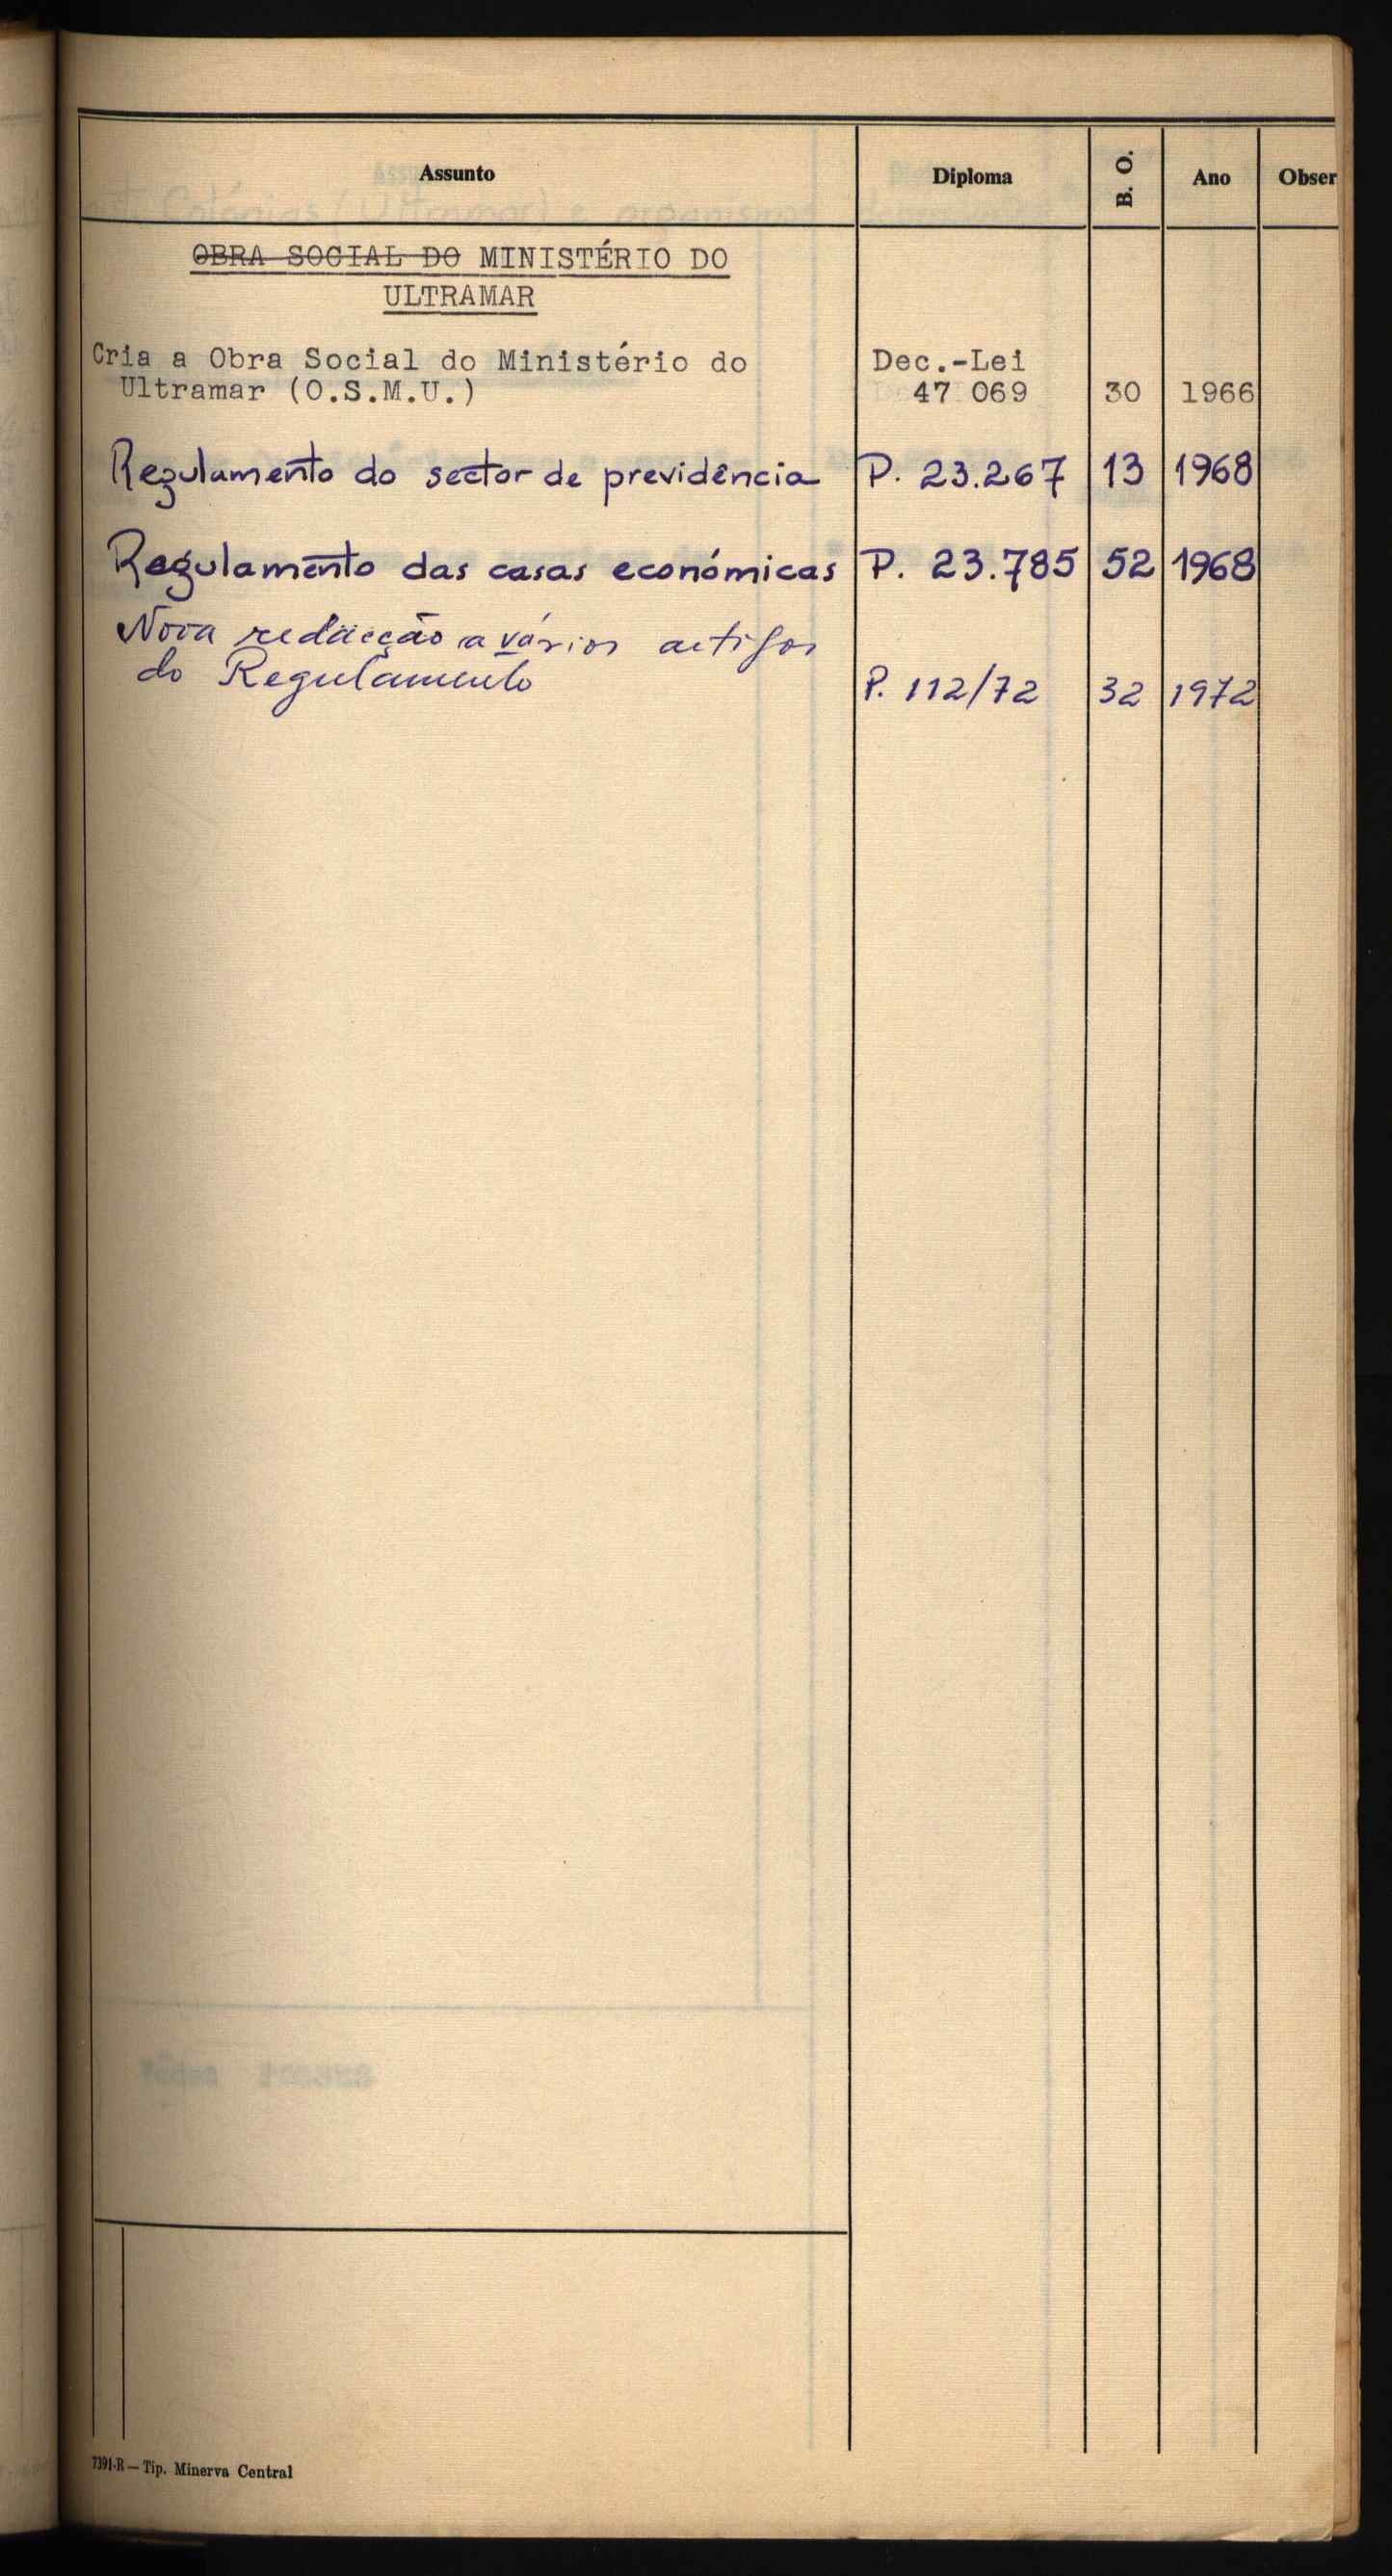 Assunto Diploma B. O. Ano Obser
OBRA SOCIAL DO MINISTÉRIO DO
ULTRAMAR
Cria a Obra Social do Ministério do Dec.-Lei
Ultramar (O.S.M.U.) 47 069 30 1966
Regulamento do sector de previdência P. 23.267 13 1968
Regulamento das casas económicas P. 23.785 52 1968
Nova redacção a vários artigos
do Regulamento P. 112/72 32 1972
7391-R — Tip. Minerva Central